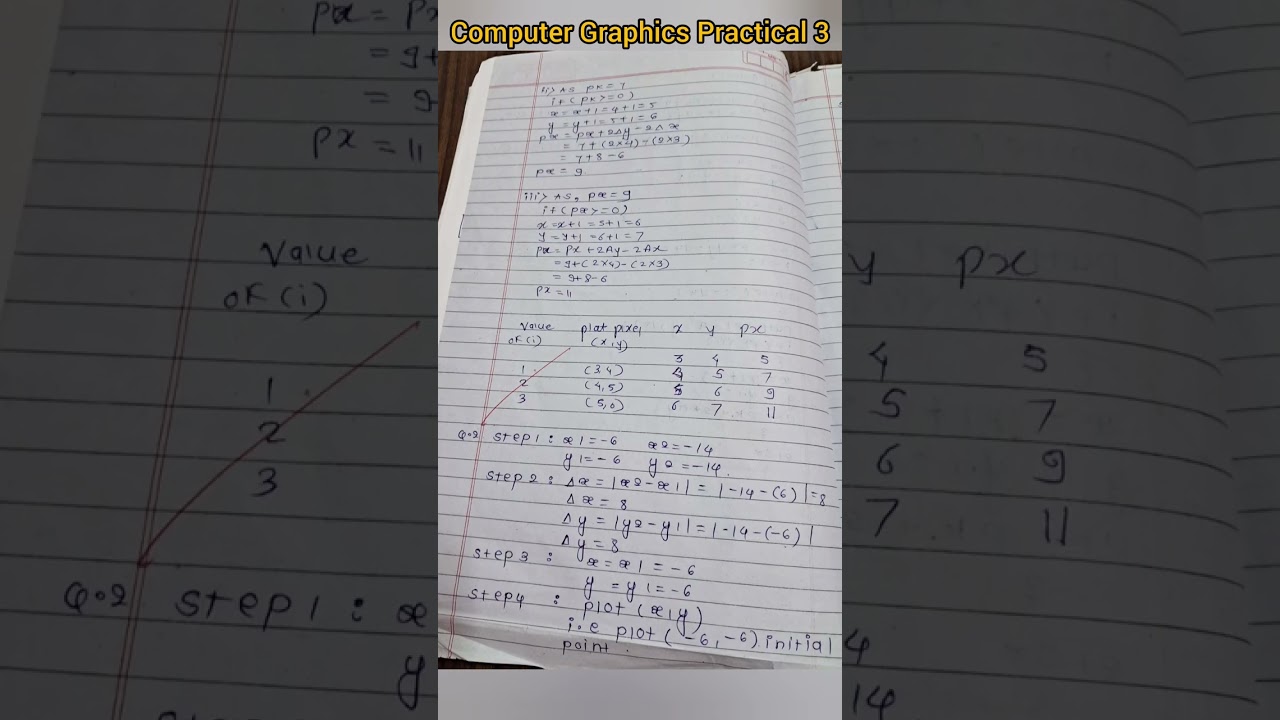 Computer Graphics Practical 3
ii> As PK = 7
if (PK >= 0)
x = x+1 = 4+1 = 5
y = y+1 = 5+1 = 6
px = px + 2Δy - 2Δx
= 7 + (2×4) - (2×3)
= 7+8-6
px = 9
iii> As, px = 9
if (px >= 0)
x = x+1 = 5+1 = 6
y = y+1 = 6+1 = 7
px = px + 2Δy - 2Δx
= 9+(2×4) - (2×3)
= 9+8-6
px = 11
Value plot pixel x y px
of (i) (x,y)
3 4 5
1 (3 4) 4 5 7
2 (4,5) 5 6 9
3 (5,6) 6 7 11
Q.2 step1 : x1 = -6 x2 = -14
y1 = -6 y2 = -14.
step2 : Δx = |x2 - x1| = |-14-(6)| = 8
Δx = 8
Δy = |y2 - y1| = |-14-(-6)|
Δy = 8
step3 : x = x1 = -6
y = y1 = -6
step4 : plot (x,y)
i.e plot (-6,-6) initial
point.